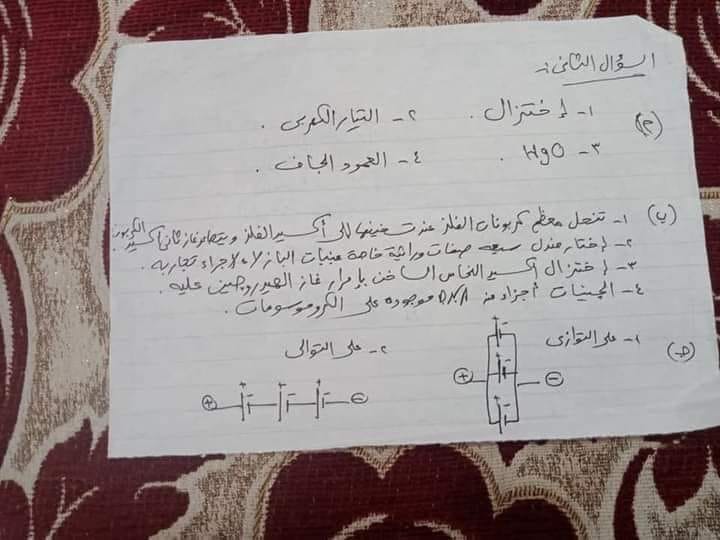 السؤال الثاني :-
(م) ١- إختزال . ٢- التيار الكهربى .
٣- HgO . ٤- العمود الجاف .
(ب) ١- تنحل معظم كربونات الفلز عند تسخينها إلى أكسيد الفلز ويتصاعد غاز ثانى أكسيد الكربون
٢- إختار مندل سبعة صفات وراثية خاصة بنبات البازلاء لإجراء تجاربه .
٣- إختزال أكسيد النحاس الساخن بإمرار غاز الهيدروجين عليه .
٤- الجينات أجزاء من DNA موجوده على الكروموسومات .
(جـ) ١- على التوازى ٢- على التوالى
+ - + -